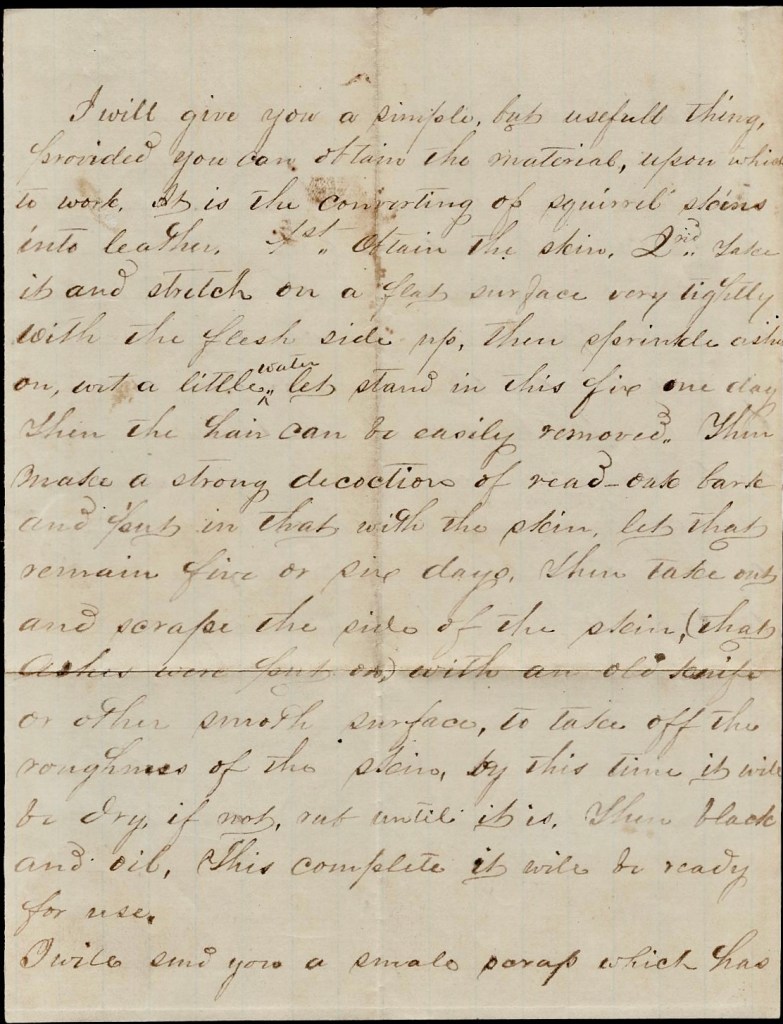 I will give you a simple, but usefull thing,
provided you can obtain the material, upon which
to work. It is the converting of squirrel skins
into leather. 1st " Obtain the skin. 2nd " Take
it and stretch on a flat surface very tightly
with the flesh side up, then sprinkle ashes
on, wet a little water " let stand in this fix one day
Then the hair can be easily removed. 3 " Then
make a strong decoction of read-oak bark
and put in that with the skin, let that
remain five or six days. Then take out
and scrape the side of the skin, (that
Ashes were put on) with an old knife
or other smoth surface, to take off the
roughness of the skin, by this time it will
be dry, if not, rub until it is. Then black
and oil, This complete it will be ready
for use.
I will send you a small scrap which has